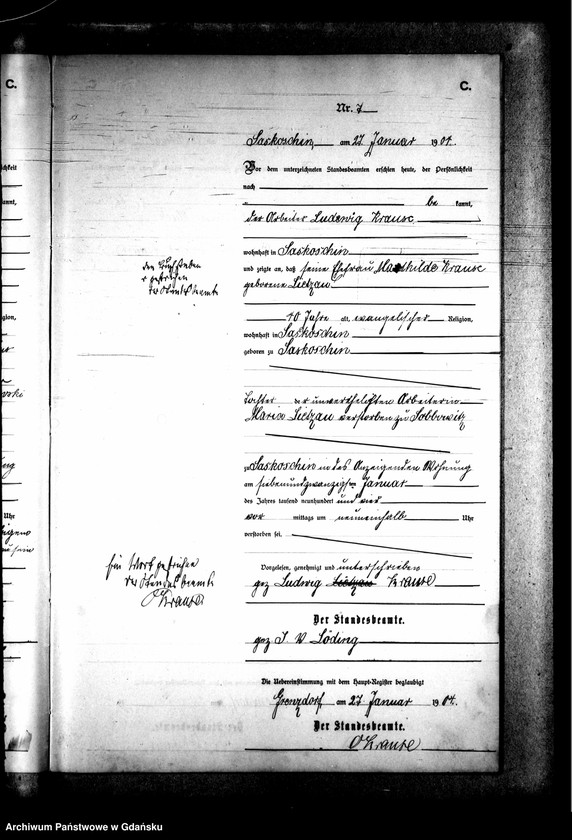 C.
C.
Nr. 7
Saskoschin, am 27 Januar 1904.
Vor dem unterzeichneten Standesbeamten erschien heute, der Persönlichkeit
nach
be kannt,
der Arbeiter Ludwig Krause
wohnhaft in Saskoschin
und zeigte an, daß seine Ehefrau Mathilde Krause
geborene Lietzau
40 Jahre alt, evangelischer Religion,
wohnhaft in Saskoschin
geboren zu Saskoschin
Tochter der unverehelichten Arbeiterin
Maria Lietzau verstorben zu Sobbowitz
zu Saskoschin in des Anzeigenden Wohnung
am siebenundzwanzigsten Januar
des Jahres tausend neunhundert und vier
vor mittags um neuneinhalb Uhr
verstorben sei.
Vorgelesen, genehmigt und unterschrieben
gez Ludwig Lietzau Krause
Der Standesbeamte.
gez I. V. Löding
Die Uebereinstimmung mit dem Haupt-Register beglaubigt
Grenzdorf am 27 Januar 1904.
Der Standesbeamte.
O Krause
den Buchstaben
r gestrichen
Der Standesbeamte
Ein Wort gestrichen
Der Standesbeamte
O Krause
Uhr
Archiwum Państwowe w Gdańsku